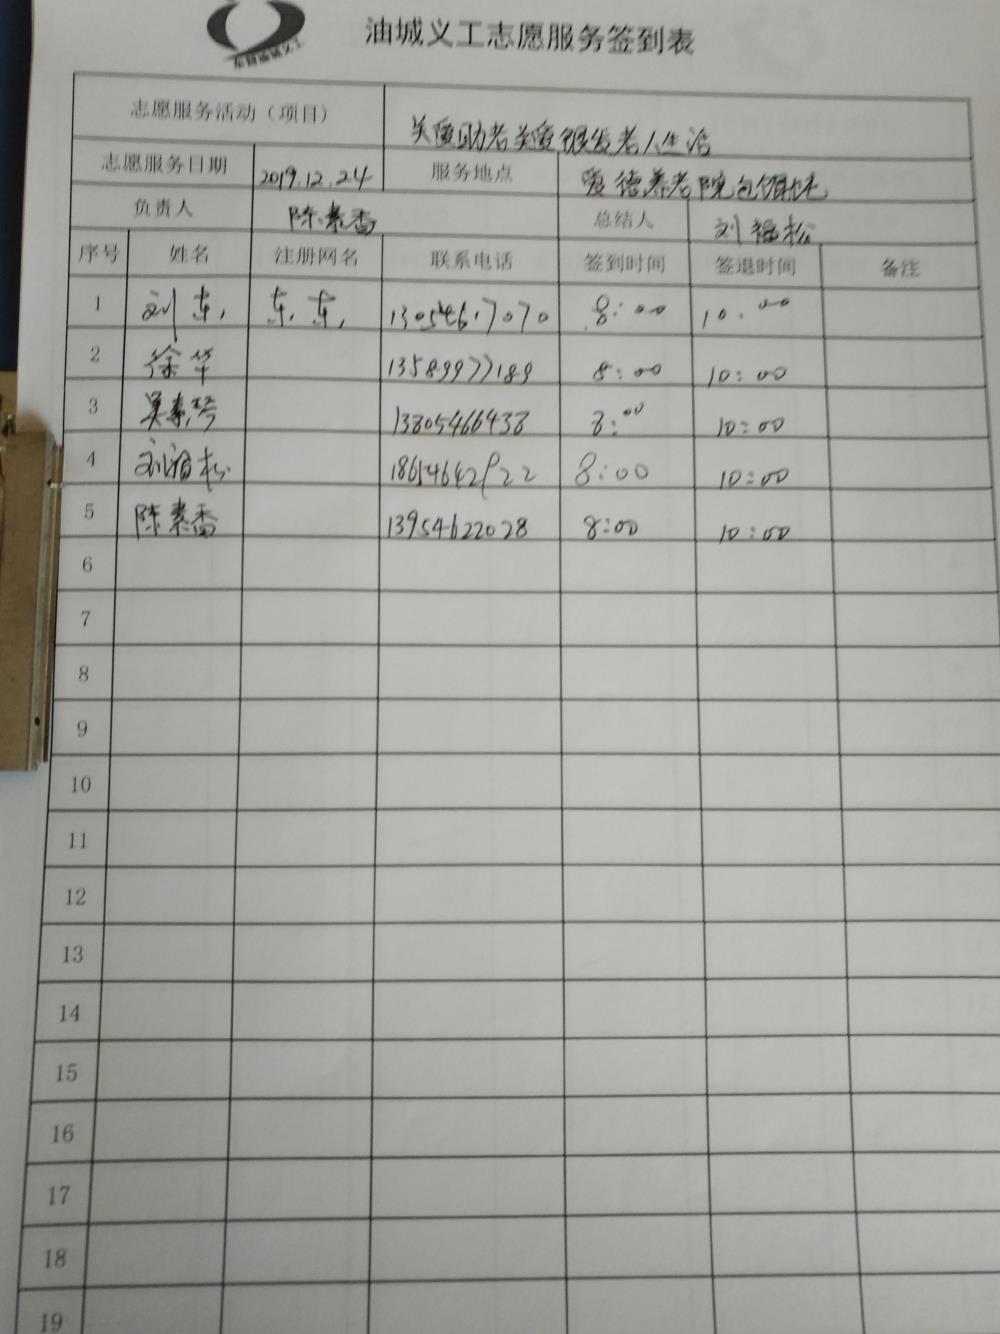 东营油城义工
油城义工志愿服务签到表
志愿服务活动（项目） 关爱助老关爱 老人生活
志愿服务日期 2019.12.24 服务地点 爱德养老院包
负责人 陈素香 总结人 刘福松
序号 姓名 注册网名 联系电话 签到时间 签退时间 备注
1 刘东 东东 8:00 10:00
2 徐华 13589977189 8:00 10:00
3 吴素琴 13805466438 8:00 10:00
4 刘福松 8:00 10:00
5 陈素香 13954622028 8:00 10:00
6
7
8
9
10
11
12
13
14
15
16
17
18
19